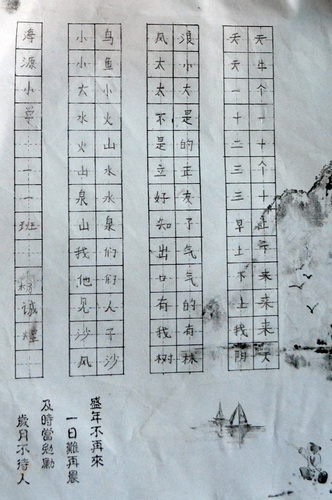 天牛个一十个十上年来来来大
天天一十二三三早上下上我阴
浪小大是的正友了气气的有林
风太太不是立好知出日有我树
鸟鱼小火山水水泉们们人子沙
小小大水火山泉山我他见沙风
海源小一一班诚辉
盛年不再來
一日難再晨
及時當勉勵
歲月不待人